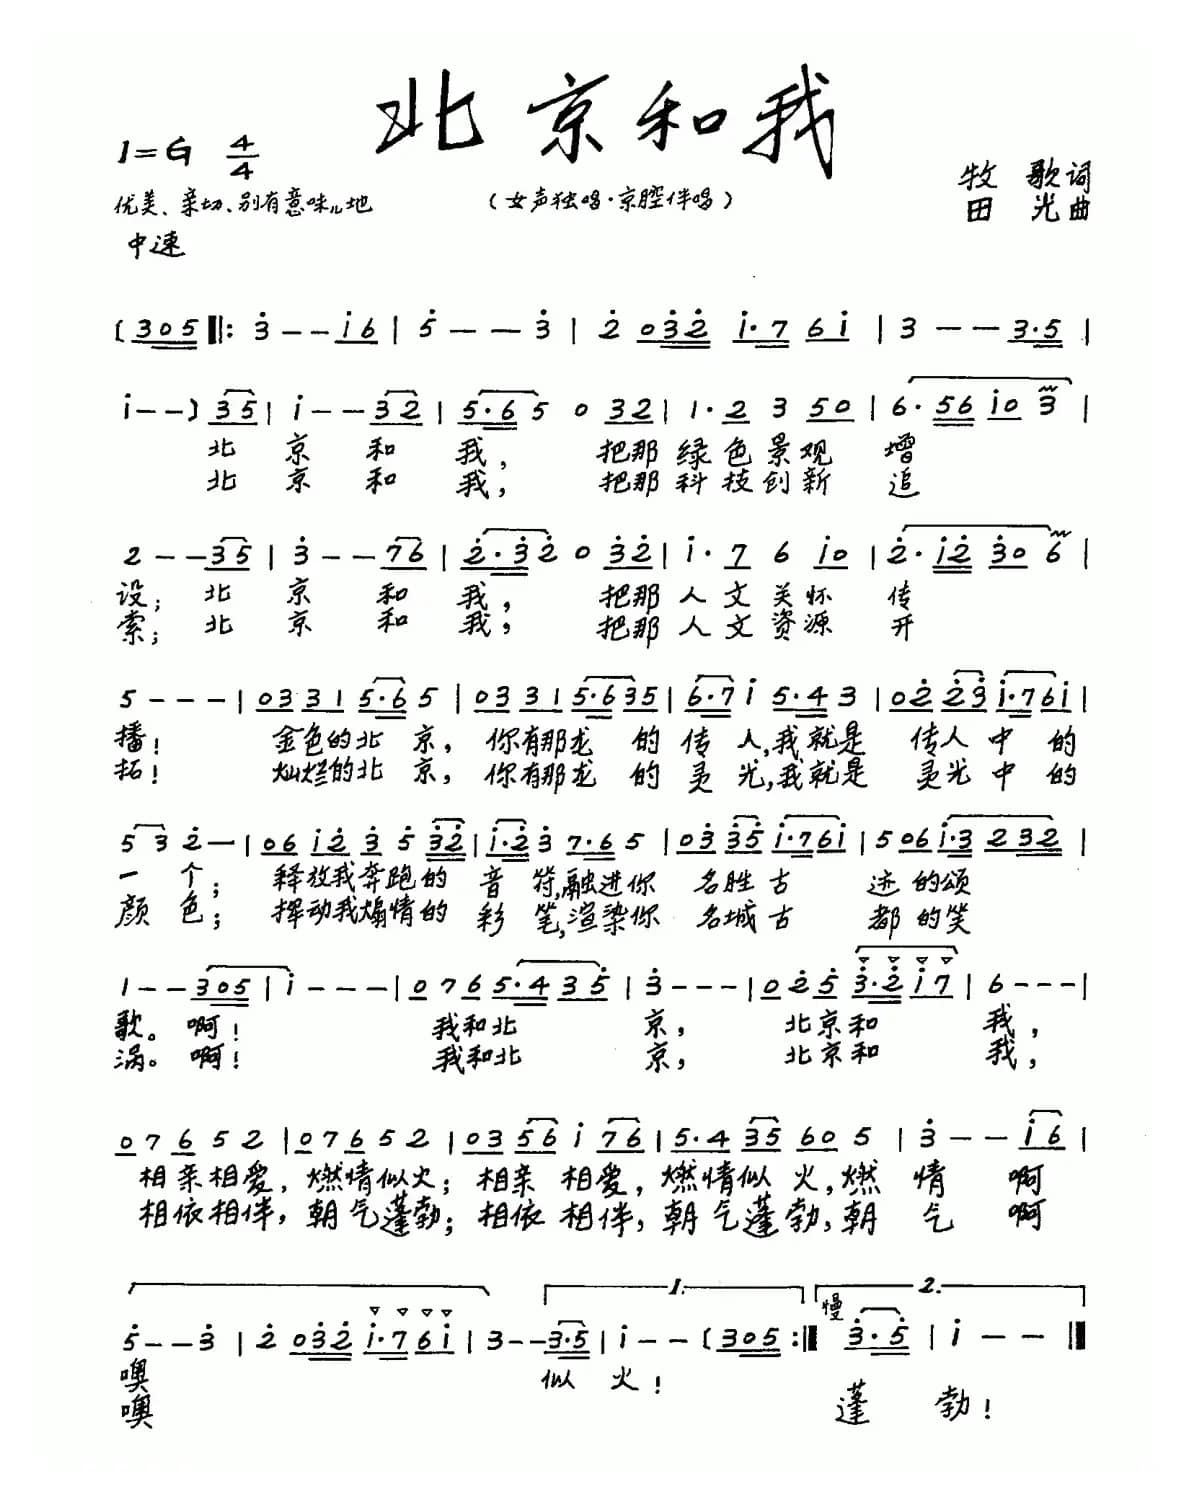 北京和我
1=G 4/4
优美、亲切、别有意味儿地
（女声独唱·京腔伴唱）
牧 歌词
田 光曲
中速
(305 ‖: 3̇ - - i̇6 | 5̇ - - 3̇ | 2̇ 03̇2̇ i̇·7 6i̇ | 3 - - 3·5 |
i̇ - - ) 35 | i̇ - - 32 | 5·65 0 32 | 1·2 3 50 | 6·56 i̇0 3̇ |
北京和我，把那绿色景观增
北京和我，把那科技创新追
2 - - 35 | 3̇ - - 76 | 2̇·3̇2̇ 0 3̇2̇ | i̇·7 6 i̇0 | 2̇·i̇2̇ 3̇0 6 |
设；北京和我，把那人文关怀传
索；北京和我，把那人文资源开
5 - - - | 0331 5·65 | 0331 5·635 | 6·7 i̇ 5·4 3 | 02̇ 2̇3̇ i̇·76i̇ |
播！金色的北京，你有那龙的传人，我就是传人中的
拓！灿烂的北京，你有那龙的灵光，我就是灵光中的
53 2̇ - | 06 i̇2̇ 3̇ 5̇ 3̇2̇ | i̇·2̇3̇ 7·6 5 | 03̇ 3̇5̇ i̇·76i̇ | 5 06 i̇·3 232 |
一个；释放我奔跑的音符，融进你名胜古迹的颂
颜色；挥动我煽情的彩笔，渲染你名城古都的笑
1 - - 305 | i̇ - - - | 0 7 6 5·4 35̇ | 3̇ - - - | 0 2̇ 5̇ 3̇·2̇ i̇7 | 6 - - - |
歌。啊！我和北京，北京和我，
涡。啊！我和北京，北京和我，
0 7 6 5 2 | 0 7 6 5 2 | 03 56 i̇ 76 | 5·4 35 60 5 | 3̇ - - i̇6 |
相亲相爱，燃情似火；相亲相爱，燃情似火，燃情啊
相依相伴，朝气蓬勃；相依相伴，朝气蓬勃，朝气啊
1.
2.
慢
5̇ - - 3̇ | 2̇ 03̇2̇ i̇·7 6i̇ | 3 - - 3·5 | i̇ - - (305 :‖ 3̇·5̇ | i̇ - - ‖
噢似火！
噢蓬勃！